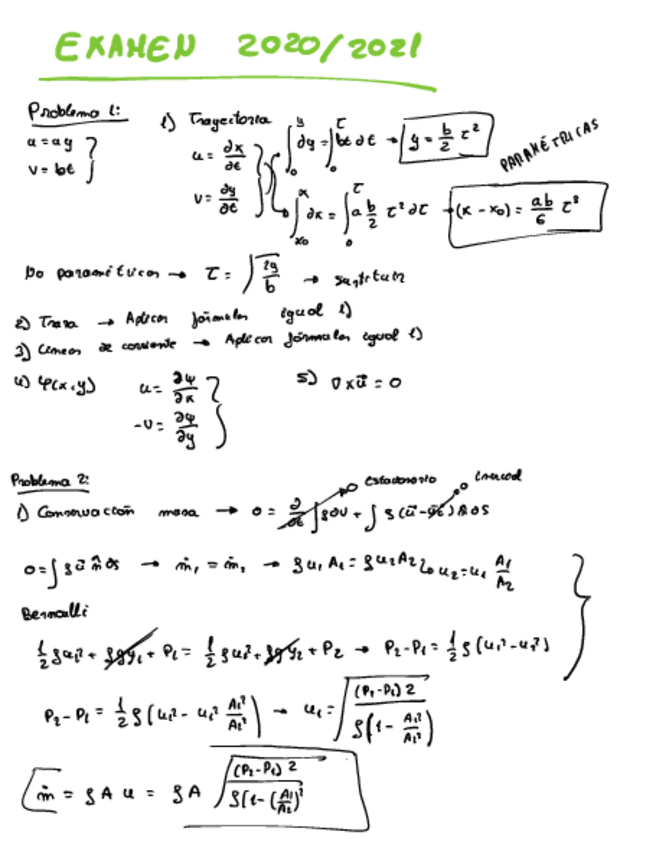 EXAMEN 2020/2021
Problema 1:
u = ay
v = bt
1) Trayectoria
u = ∂x/∂t
v = ∂y/∂t
∫₀^y ∂y = ∫₀^τ bt ∂t → y = b/2 τ²
∫_{x₀}^x ∂x = ∫₀^τ a b/2 τ² ∂τ → (x - x₀) = ab/6 τ³
PARAMÉTRICAS
No paramétricas → τ = √(2y/b) → sustituir
2) Traza → Aplicar fórmulas igual 1)
3) Líneas de corriente → Aplicar fórmulas igual 1)
4) φ(x,y) u = ∂ψ/∂x
-v = ∂ψ/∂y
5) ∇×ū = 0
Problema 2:
Estacionario
1) Conservación masa → 0 = ∂/∂t ∫ρ∂V + ∫ρ(ū - ) n̂ ∂S
0 = ∫ρ ū n̂ ∂S → ṁ₁ = ṁ₂ → ρu₁A₁ = ρu₂A₂ ↳ u₂ = u₁ A₁/A₂
Bernoulli
½ρu₁² + ρgy₁ + P₁ = ½ρu₂² + ρgy₂ + P₂ → P₂-P₁ = ½ρ(u₁²-u₂²)
P₂-P₁ = ½ρ(u₁² - u₁² A₁²/A₂²) → u₁ = √((P₂-P₁)2 / ρ(1 - A₁²/A₂²))
ṁ = ρAu = ρA √((P₂-P₁)2 / ρ(1-(A₁/A₂)²